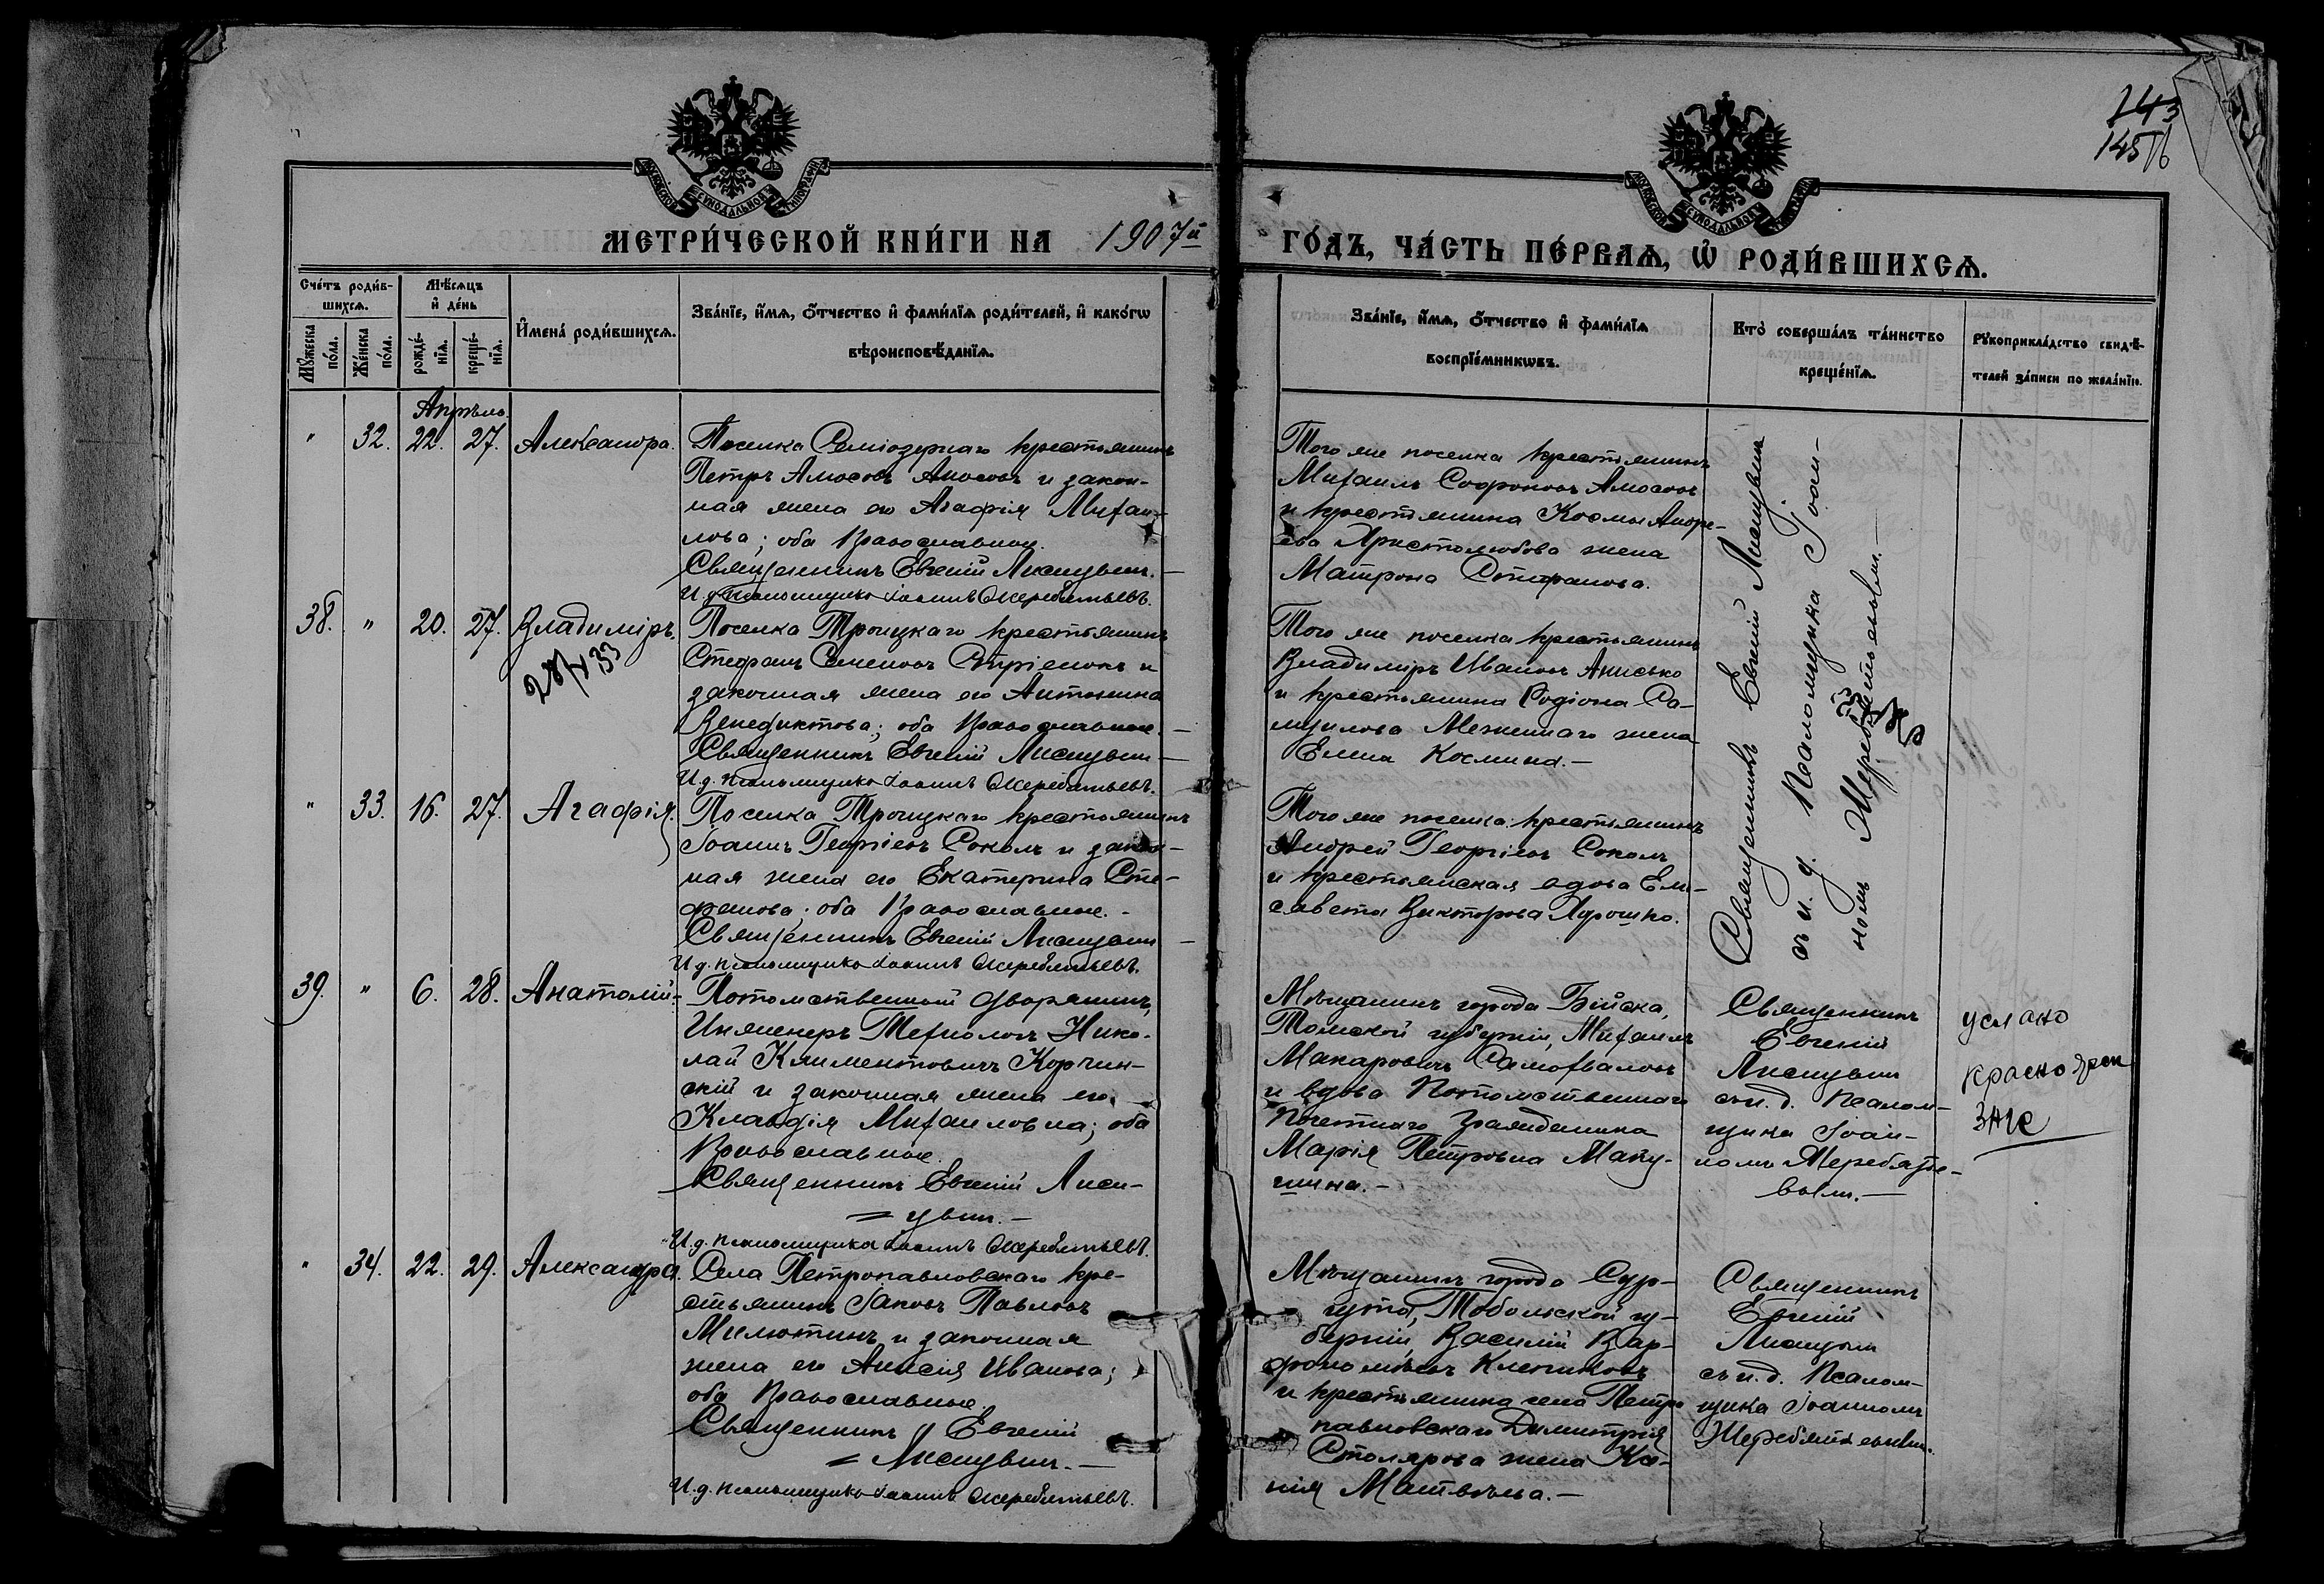 143
145
МОСКОВСКОЙ СѴНОДАЛЬНОЙ ТИПОГРАФІИ
МОСКОВСКОЙ СѴНОДАЛЬНОЙ ТИПОГРАФІИ
МЕТРИ́ЧЕСКОЙ КНИ́ГИ НА 1907й
ГО́ДЪ, ЧА́СТЬ ПЕ́РВАѦ, Ѡ҆ РОДИ́ВШИХСѦ.
Сче́тъ роди́в-
шихсѧ.
Мѣ́сѧцъ
и҆ де́нь
Мꙋ́жеска по́ла.
Же́нска по́ла.
рожде́-
нїѧ.
креще́-
нїѧ.
И҆мена̀ роди́вшихсѧ.
Зва́нїе, и҆́мѧ, ѻ҆́тчество и҆ фами́лїѧ роди́телей, и҆ како́гѡ
вѣроисповѣ́данїѧ.
Зва́нїе, и҆́мѧ, ѻ҆́тчество и҆ фами́лїѧ
воспрїе́мникѡвъ.
Кто̀ соверша́лъ та́инство
креще́нїѧ.
Рꙋкоприкла́дство свидѣ́-
телей за́писи по жела́нїю.
Апрѣль.
" 32. 22. 27. Александра.
Поселка Семіозернаго крестьянинъ
Петръ Амосовъ Амосовъ и закон-
ная жена его Агафія Михаи-
лова; оба Православные.
Священникъ Евгеній Лисицынъ.
И.д. псаломщика Іоаннъ Жеребятьевъ.
Того же поселка крестьянинъ
Михаилъ Софроновъ Амосовъ
и крестьянина Космы Андре-
ева Христолюбова жена
Матрона Стефанова.
Священникъ Евгеній Лисицынъ
съ и. д. Псаломщика Іоан-
номъ Жеребятьевымъ.
38. " 20. 27. Владиміръ.
Поселка Троицкаго крестьянинъ
Стефанъ Семеновъ и
законная жена его Антонина
Венедиктова; оба Православные.
Священникъ Евгеній Лисицынъ
И.д. псаломщика Іоаннъ Жеребятьевъ.
Того же поселка крестьянинъ
Владиміръ Ивановъ Анисько
и крестьянина Родіона Са-
муилова жена
Елена Космина.
" 33. 16. 27. Агафія.
Поселка Троицкаго крестьянинъ
Іоаннъ Георгіевъ Соколъ и закон-
ная жена его Екатерина Сте-
фанова; оба Православные.
Священникъ Евгеній Лисицынъ
И.д. псаломщика Іоаннъ Жеребятьевъ.
Того же поселка крестьянинъ
Андрей Георгіевъ Соколъ
и крестьянская вдова Ели-
савета Викторова
39. " 6. 28. Анатолій.
Потомственный дворянинъ,
Инженеръ Технологъ Нико-
лай Климентовичъ Корчин-
скій и законная жена его
Клавдія Михаиловна; оба
Православные.
Священникъ Евгеній Лиси-
= цынъ.
И.д. псаломщика Іоаннъ Жеребятьевъ.
Мѣщанинъ города Бійска,
Томской губерніи, Михаилъ
Макаровичъ Самохваловъ
и вдова Потомственнаго
Почетнаго Гражданина
Марія Петровна Маку-
шина.
Священникъ
Евгеній
Лисицынъ
съ и. д. Псалом-
щика Іоан-
номъ Жеребятье-
вымъ.
услано
ЗАГС
" 34. 22. 29. Александра.
Села Петропавловскаго кре-
стьянинъ Іаковъ Павловъ
Милютинъ и законная
жена его Анисія Иванова;
оба Православные.
Священникъ Евгеній
= Лисицынъ.
И.д. псаломщика Іоаннъ Жеребятьевъ.
Мѣщанинъ города Сур-
гута, Тобольской гу-
берніи, Василій Вар-
фоломѣевъ Клепиковъ
и крестьянина села Петро-
павловскаго Димитрія
Столярова жена Ксе-
нія Матвѣева.
Священникъ
Евгеній
Лисицынъ
съ и. д. Псалом-
щика Іоанномъ
Жеребятьевымъ.